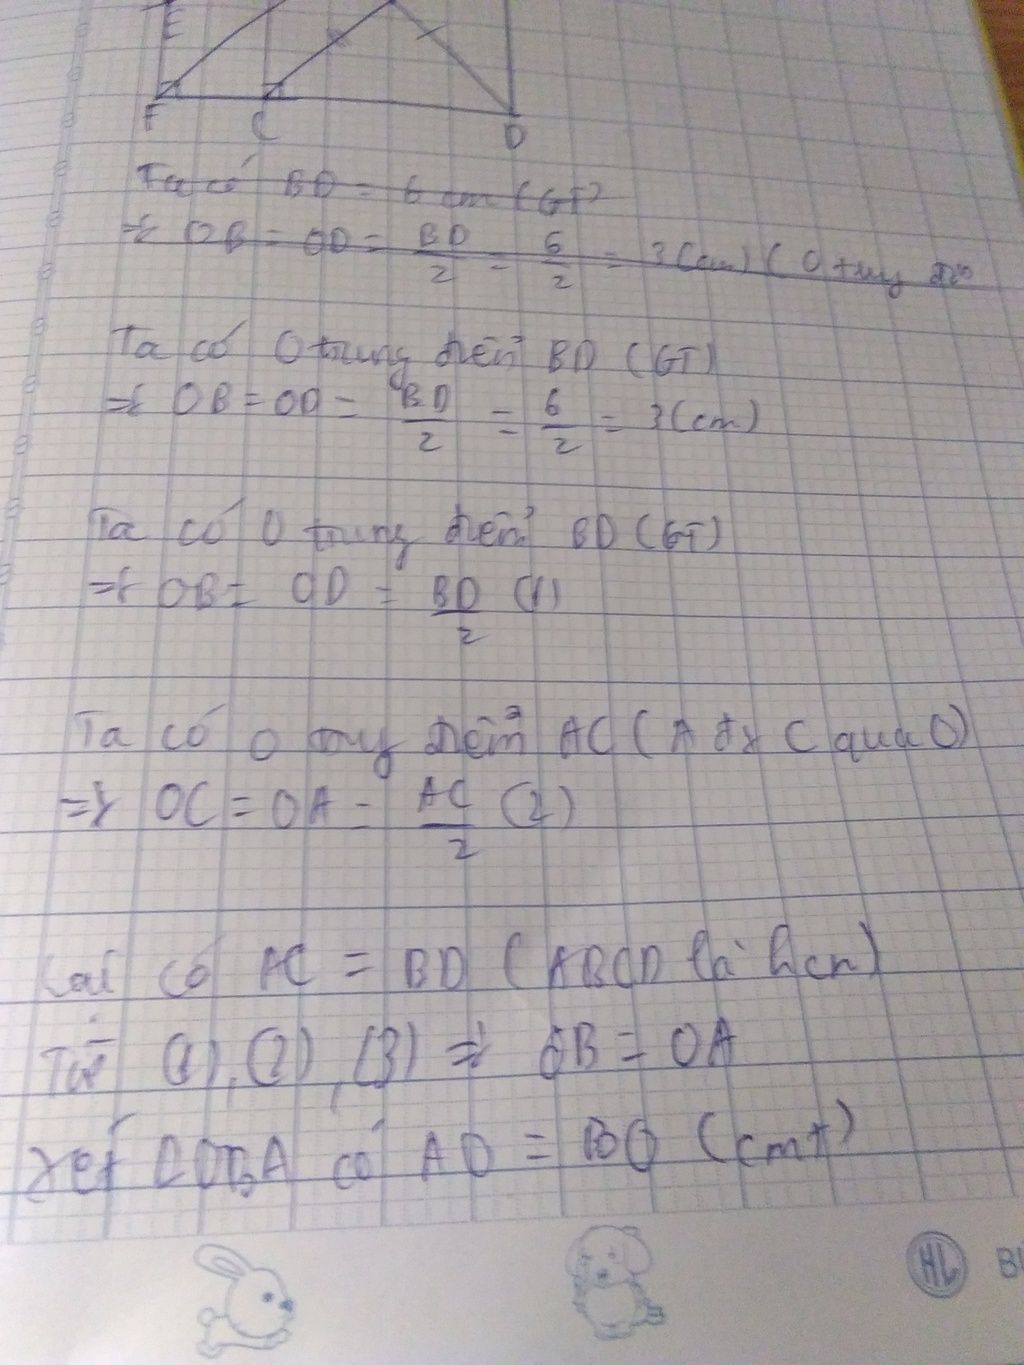 E
F C D
Ta có BD = 6 cm (GT)
=> OB = OD = BD/2 = 6/2 = 3(cm) (O trung
Ta có O trung điểm BD (GT)
=> OB = OD = BD/2 = 6/2 = 3(cm)
Ta có O trung điểm BD (GT)
=> OB = OD = BD/2 (1)
Ta có O trung điểm AC (A đx C qua O)
=> OC = OA = AC/2 (2)
Lại có AC = BD (ABCD là hcn)
Từ (1), (2), (3) => OB = OA
Xét ΔOBA có AO = BO (cmt)
HL